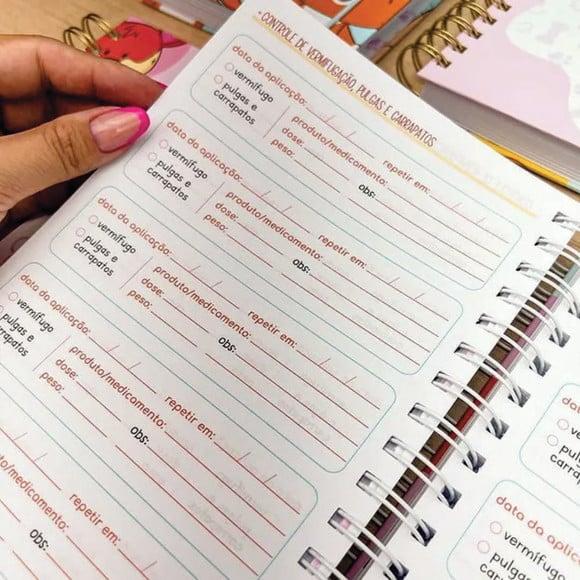 CONTROLE DE VERMIFUGAÇÃO, PULGAS E CARRAPATOS
data da aplicação: / / repetir em: / /
vermífugo
pulgas e
carrapatos
produto/medicamento:
dose: obs:
peso:
data da aplicação: / / repetir em: / /
vermífugo
pulgas e
carrapatos
produto/medicamento:
dose: obs:
peso:
data da aplicação: / / repetir em: / /
vermífugo
pulgas e
carrapatos
produto/medicamento:
dose: obs:
peso:
data da aplicação: / / repetir em: / /
vermífugo
pulgas e
carrapatos
produto/medicamento:
dose: obs:
peso:
repetir em: / /
produto/medicamento:
obs:
vermí
pul
carra
data da aplic
vermífug
pulgas
carrapat